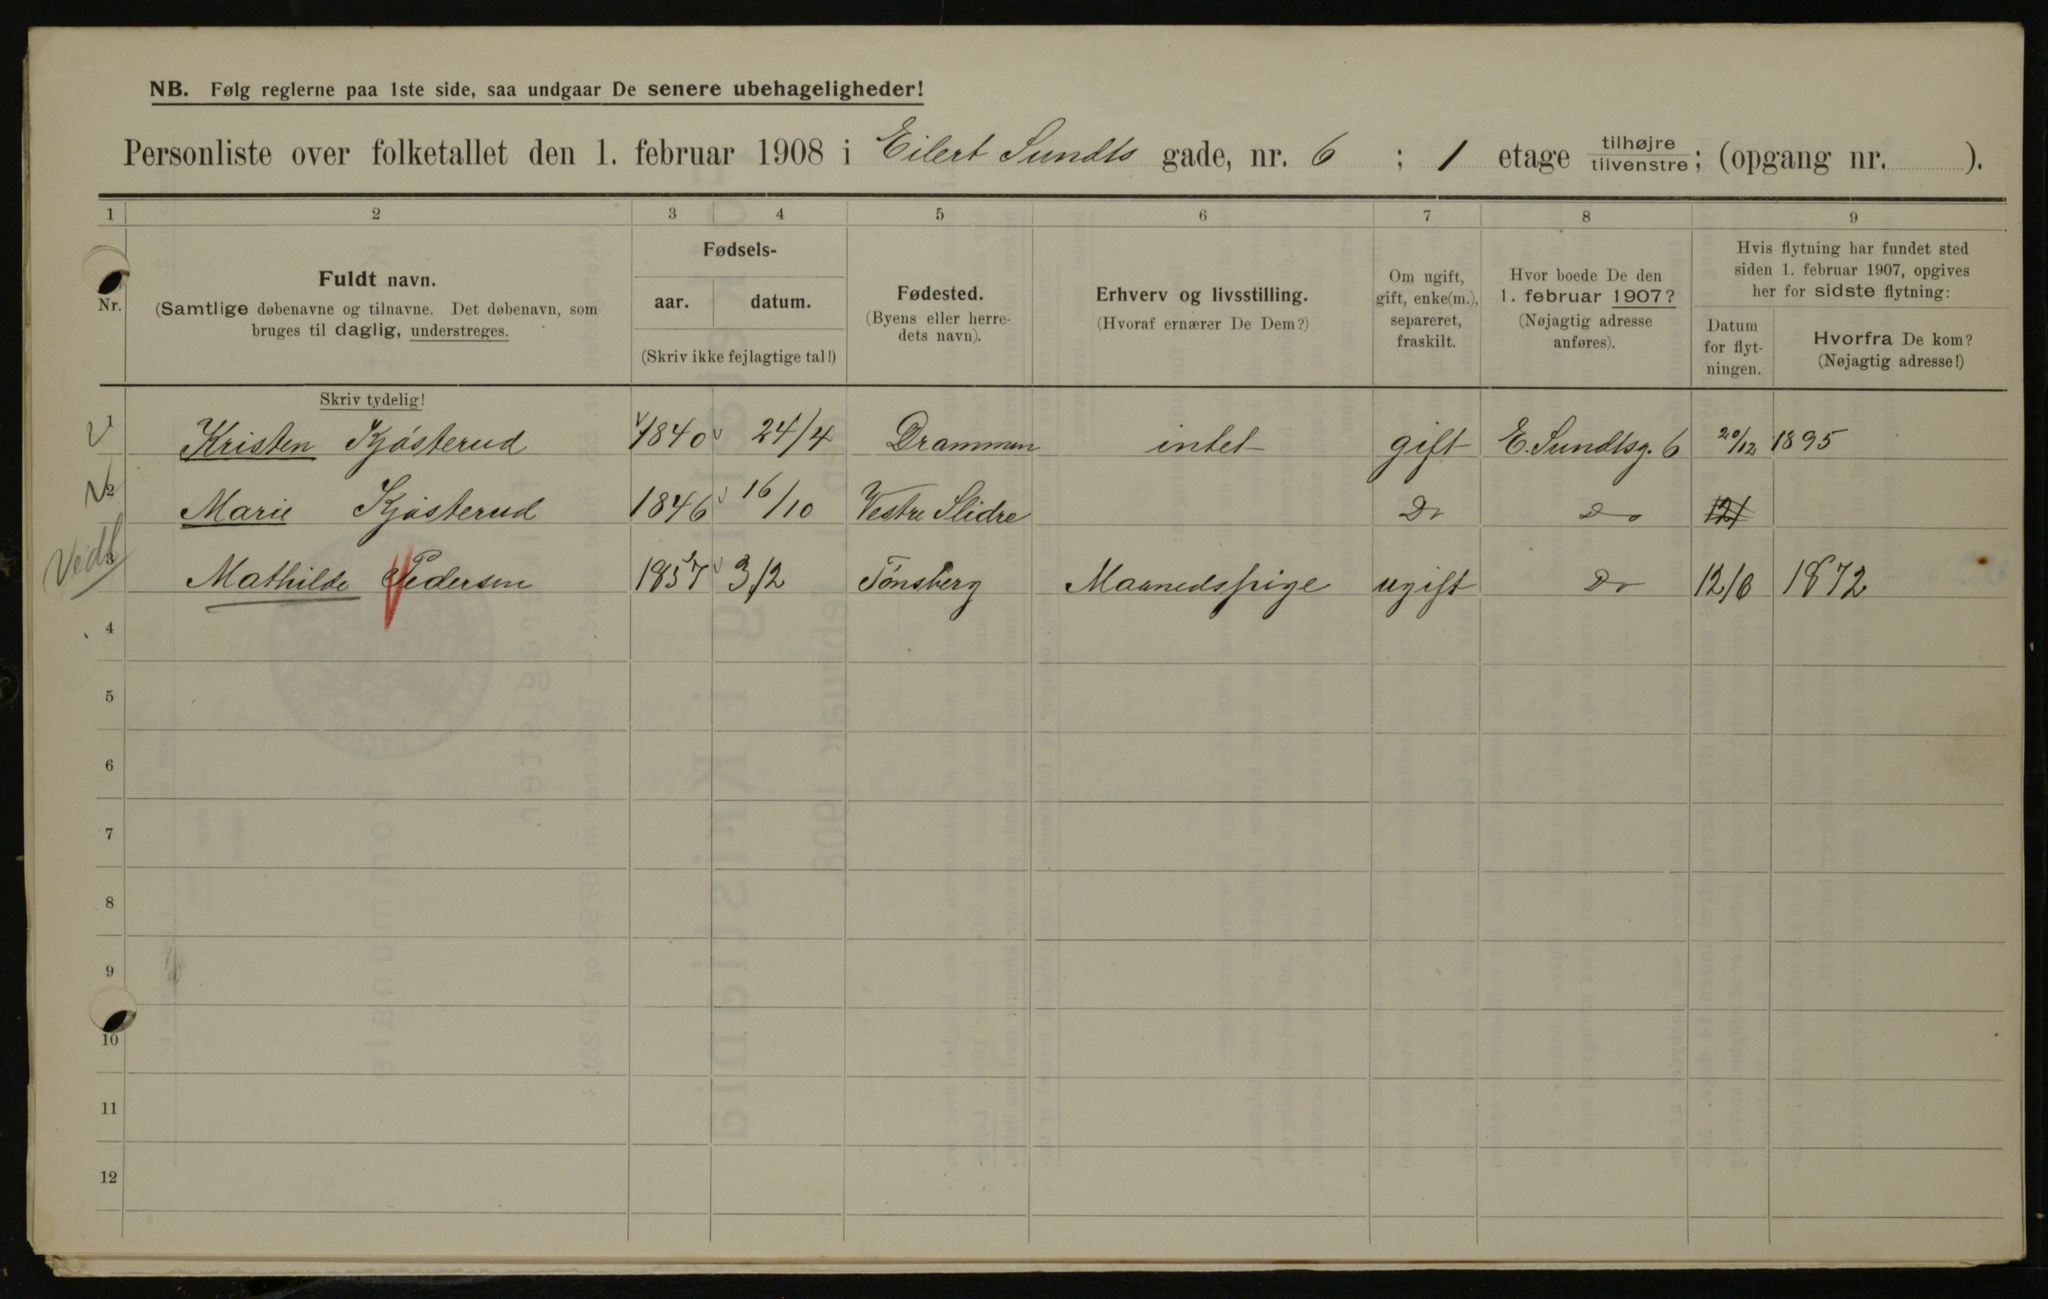 NB. Følg reglerne paa 1ste side, saa undgaar De senere ubehageligheder!
Personliste over folketallet den 1. februar 1908 i Eilert Sundts gade, nr. 6 ; 1 etage tilhøjre tilvenstre; (opgang nr. ).
1 2 3 4 5 6 7 8 9
Nr.
Fuldt navn.
(Samtlige døbenavne og tilnavne. Det døbenavn, som
bruges til daglig, understreges.
Fødsels-
aar. datum.
(Skriv ikke fejlagtige tal!)
Fødested.
(Byens eller herre-
dets navn).
Erhverv og livsstilling.
(Hvoraf ernærer De Dem?)
Om ugift,
gift, enke(m.),
separeret,
fraskilt.
Hvor boede De den
1. februar 1907?
(Nøjagtig adresse
anføres).
Hvis flytning har fundet sted
siden 1. februar 1907, opgives
her for sidste flytning:
Datum
for flyt-
ningen.
Hvorfra De kom?
(Nøjagtig adresse!)
Skriv tydelig!
1 Kristen Kjøsterud 1840 24/4 Drammen intet gift E. Sundtsg. 6 20/12 1895
2 Marie Kjøsterud 1846 16/10 Vestre Slidre Do Do 121
3 Mathilde Pedersen 1857 3/2 Tønsberg Maanedspige ugift Do 12/6 1872
4
5
6
7
8
9
10
11
12